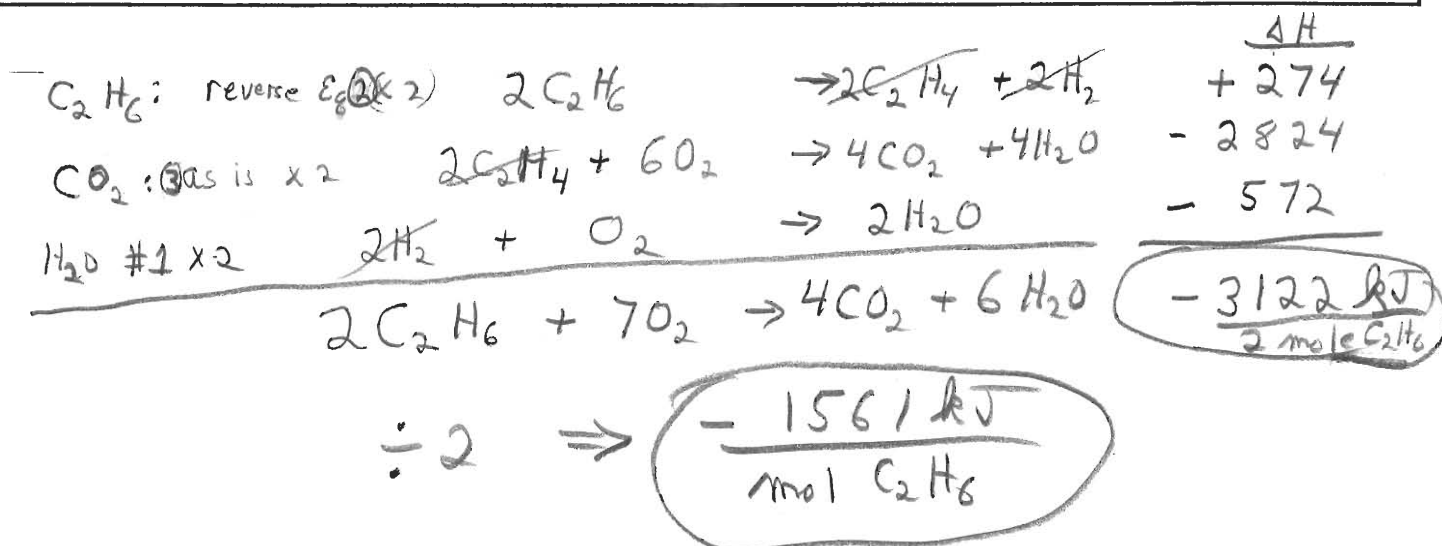 ΔH
C₂H₆: reverse Eq②(x 2) 2C₂H₆ → 2C₂H₄ + 2H₂ + 274
CO₂: ③as is x 2 2C₂H₄ + 6O₂ → 4CO₂ + 4H₂O - 2824
H₂O #1 x 2 2H₂ + O₂ → 2H₂O - 572
2C₂H₆ + 7O₂ → 4CO₂ + 6H₂O - 3122 kJ / 2 mole C₂H₆
÷2 ⇒ - 1561 kJ / mol C₂H₆